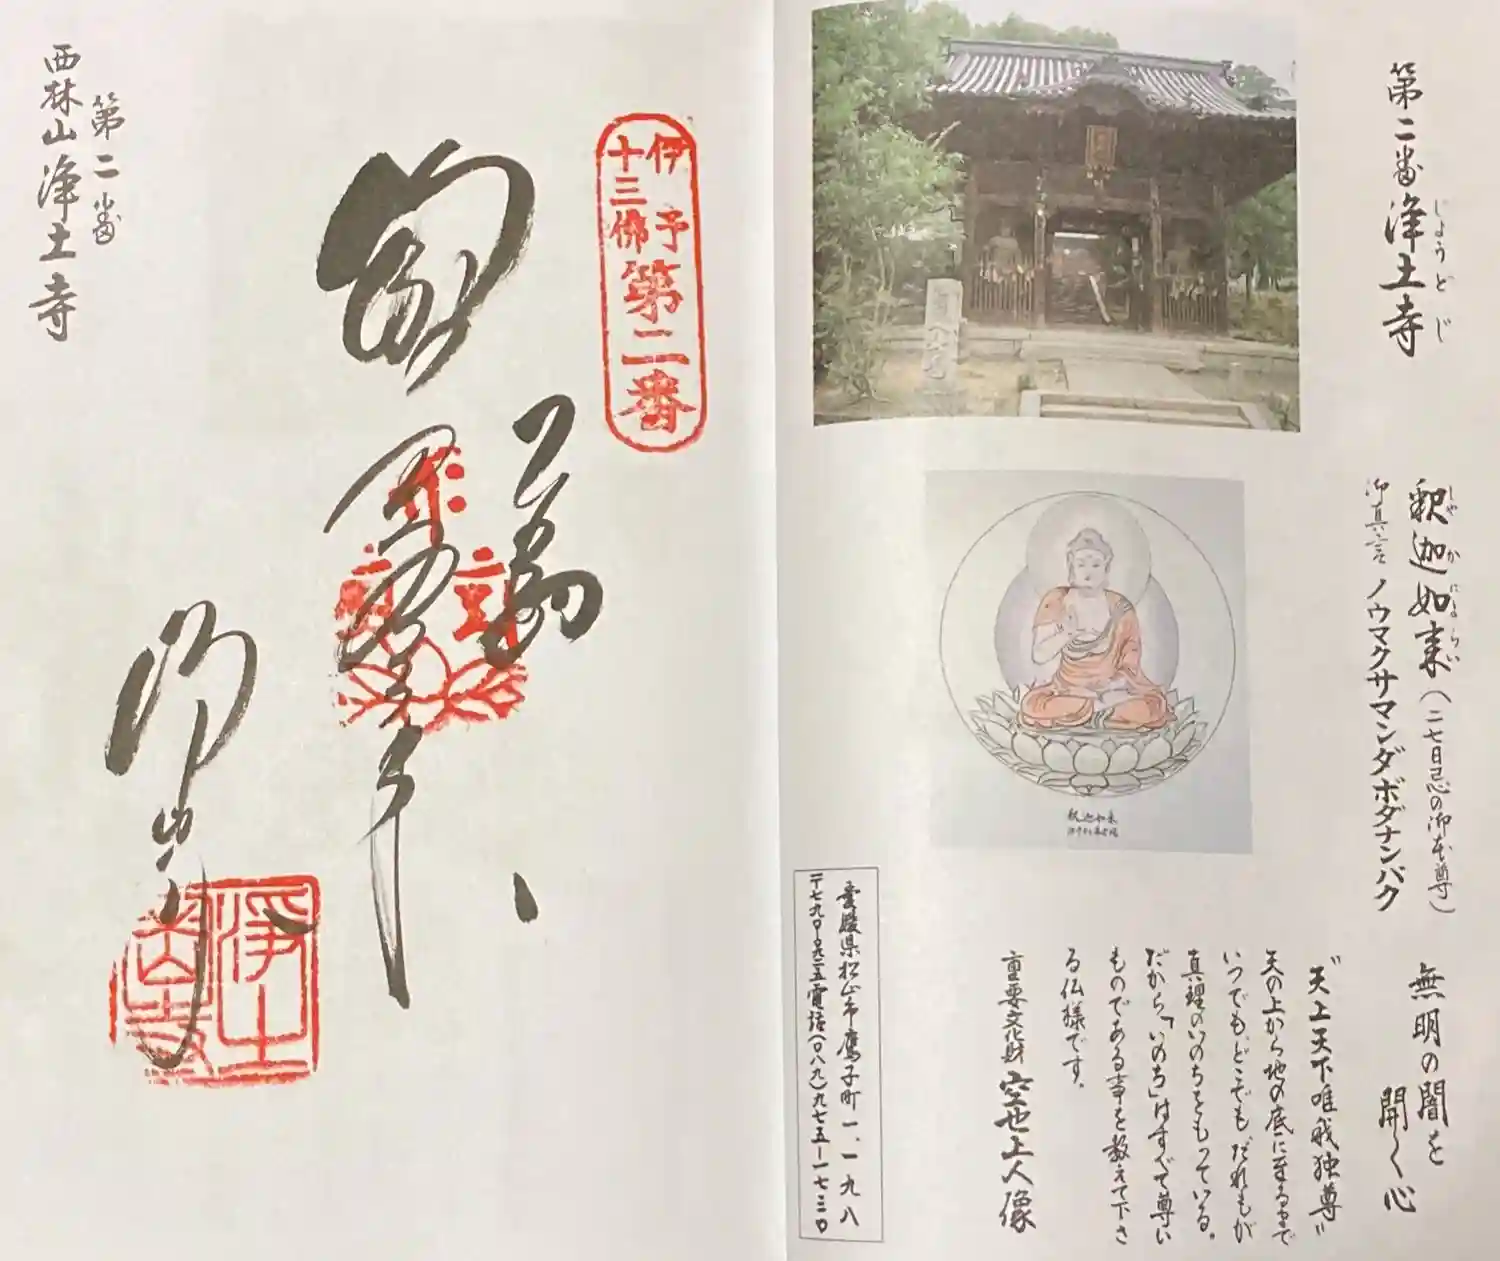 第二番 浄土寺
じょうどじ
釈迦如来(二七日忌の御本尊)
しゃかにょらい
御真言 ノウマクサマンダボダナンバク
無明の闇を
開く心
"天上天下唯我独尊"
天の上から地の底に至るまで
いつでも、どこでも、だれもが
真理のいのちをもっている。
だから、「いのち」はすべて尊い
ものである事を教えて下さ
る仏様です。
重要文化財 空也上人像
釈迦如来
愛媛県松山市鷹子町一、一九八
電話(〇八九)九七五ー一七三〇
伊予
十三佛
第二番
第二番
西林山 浄土寺
浄土